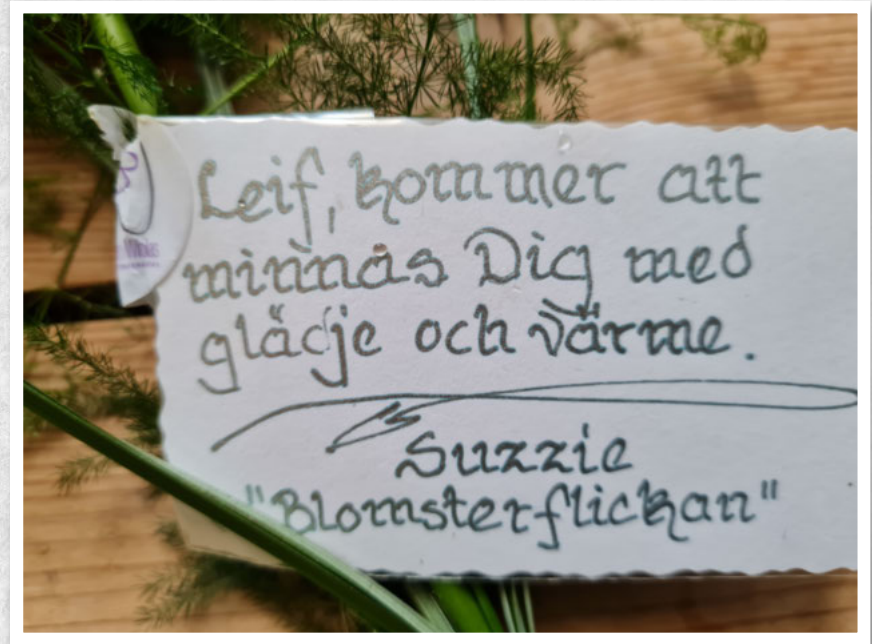 Leif, kommer att
minnas Dig med
glädje och värme.
Suzzie
"Blomsterflickan"